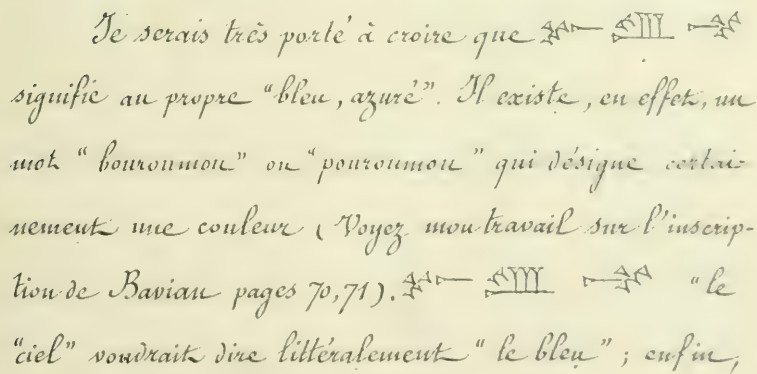 Je serais très porté à croire que
signifie au propre "bleu, azuré". Il existe, en effet, un
mot "bouroumou" ou "pouroumou" qui désigne certai-
nement une couleur (Voyez mon travail sur l'inscrip-
tion de Bavian pages 70, 71). "le
"ciel" voudrait dire littéralement "le bleu"; enfin,